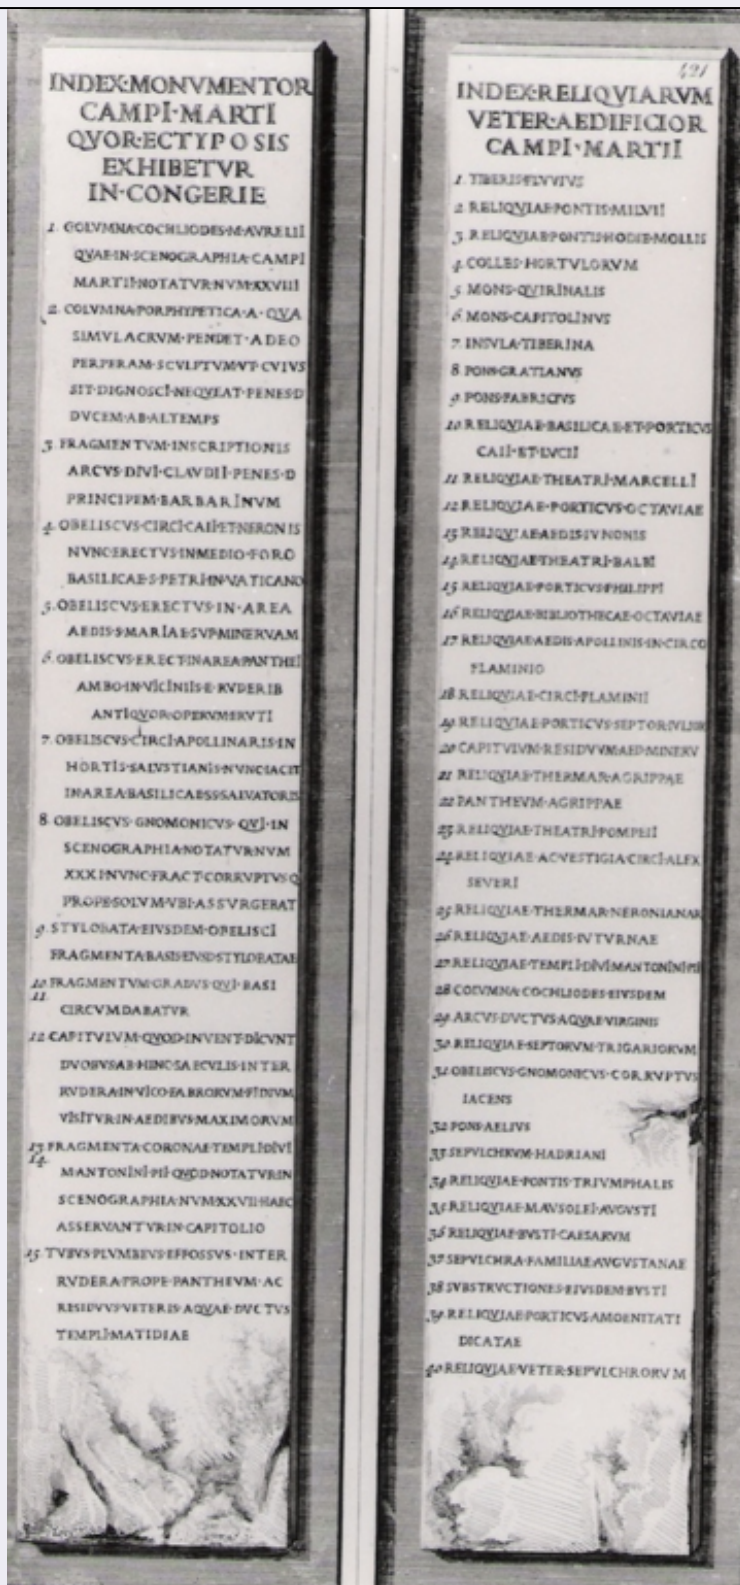 INDEX·MONVMENTOR
CAMPI·MARTI
QVOR·ECTYPOSIS
EXHIBETVR
IN·CONGERIE
1. COLVMNA·COCHLIODES·M·AVRELII
QVAE·IN·SCENOGRAPHIA·CAMPI
MARTII·NOTATVR·NVM·XXVIII
2. COLVMNA·PORPHYPETICA·A·QVA
SIMVLACRVM·PENDET·ADEO
PERPERAM·SCVLPTVM·VT·CVIVS
SIT·DIGNOSCI·NEQVEAT·PENES·D
DVCEM·AB·ALTEMPS
3. FRAGMENTVM·INSCRIPTIONIS
ARCVS·DIVI·CLAVDII·PENES·D
PRINCIPEM·BARBARINVM
4. OBELISCVS·CIRCI·CAII·ET·NERONIS
NVNC·ERECTVS·IN·MEDIO·FORO
BASILICAE·S·PETRI·IN·VATICANO
5. OBELISCVS·ERECTVS·IN·AREA
AEDIS·S·MARIAE·SVP·MINERVAM
6. OBELISCVS·ERECT·IN·AREA·PANTHEI
AMBO·IN·VICINIIS·E·RVDERIB
ANTIQVOR·OPERVM·ERVTI
7. OBELISCVS·CIRCI·APOLLINARIS·IN
HORTIS·SALVSTIANIS·NVNC·IACIT
IN·AREA·BASILICAE·SS·SALVATORIS
8 OBELISCVS·GNOMONICVS·QVI·IN
SCENOGRAPHIA·NOTATVR·NVM
XXXI·NVNC·FRACT·CORRVPTVSQ
PROPE·SOLVM·VBI·ASSVRGEBAT
9. STYLOBATA·EIVSDEM·OBELISCI
FRAGMENTA·BASIS·EIVSD·STYLOBATAE
10. FRAGMENTVM·GRADVS·QVI·BASI
11.
CIRCVMDABATVR
12. CAPITVLVM·QVOD·INVENT·DICVNT
DVOBVS·AB·HINC·SAECVLIS·INTER
RVDERA·IN·VICO·FABRORVM·FIDIVM
VISITVR·IN·AEDIBVS·MAXIMORVM
13. FRAGMENTA·CORONAE·TEMPLI·DIVI
14.
M·ANTONINI·PII·QVOD·NOTATVR·IN
SCENOGRAPHIA·NVM·XXVII·HAEC
ASSERVANTVR·IN·CAPITOLIO
15. TVBVS·PLVMBEVS·EFFOSSVS·INTER
RVDERA·PROPE·PANTHEVM·AC
RESIDVVS·VETERIS·AQVAE·DVCTVS
TEMPLI·MATIDIAE
421
INDEX·RELIQVIARVM
VETER·AEDIFICIOR
CAMPI·MARTII
1. TIBERIS·FLVVIVS
2 RELIQVIAE·PONTIS·MILVII
3. RELIQVIAE·PONTIS·HODIE·MOLLIS
4. COLLES·HORTVLORVM
5 MONS·QVIRINALIS
6 MONS·CAPITOLINVS
7. INSVLA·TIBERINA
8 PONS·GRATIANVS
9. PONS·FABRICIVS
10 RELIQVIAE·BASILICAE·ET·PORTICVS
CAII·ET·LVCII
11 RELIQVIAE·THEATRI·MARCELLI
12 RELIQVIAE·PORTICVS·OCTAVIAE
13 RELIQVIAE·AEDIS·IVNONIS
14 RELIQVIAE·THEATRI·BALBI
15 RELIQVIAE·PORTICVS·PHILIPPI
16 RELIQVIAE·BIBLIOTHECAE·OCTAVIAE
17 RELIQVIAE·AEDIS·APOLLINIS·IN·CIRCO
FLAMINIO
18 RELIQVIAE·CIRCI·FLAMINII
19 RELIQVIAE·PORTICVS·SEPTOR·IVLIOR
20 CAPITVLVM·RESIDVVM·AED·MINERV
21 RELIQVIAE·THERMAR·AGRIPPAE
22 PANTHEVM·AGRIPPAE
23 RELIQVIAE·THEATRI·POMPEII
24 RELIQVIAE·AC·VESTIGIA·CIRCI·ALEX
SEVERI
25 RELIQVIAE·THERMAR·NERONIANAR
26 RELIQVIAE·AEDIS·IVTVRNAE
27 RELIQVIAE·TEMPLI·DIVI·M·ANTONINI·PII
28 COLVMNA·COCHLIODES·EIVSDEM
29 ARCVS·DVCTVS·AQVAE·VIRGINIS
30 RELIQVIAE·SEPTORVM·TRIGARIORVM
31 OBELISCVS·GNOMONICVS·CORRVPTVS
IACENS
32 PONS·AELIVS
33 SEPVLCHRVM·HADRIANI
34 RELIQVIAE·PONTIS·TRIVMPHALIS
35 RELIQVIAE·MAVSOLEI·AVGVSTI
36 RELIQVIAE·BVSTI·CAESARVM
37 SEPVLCHRA·FAMILIAE·AVGVSTANAE
38 SVBSTRVCTIONES·EIVSDEM·BVSTI
39 RELIQVIAE·PORTICVS·AMOENITATI
DICATAE
40 RELIQVIAE·VETER·SEPVLCHRORVM